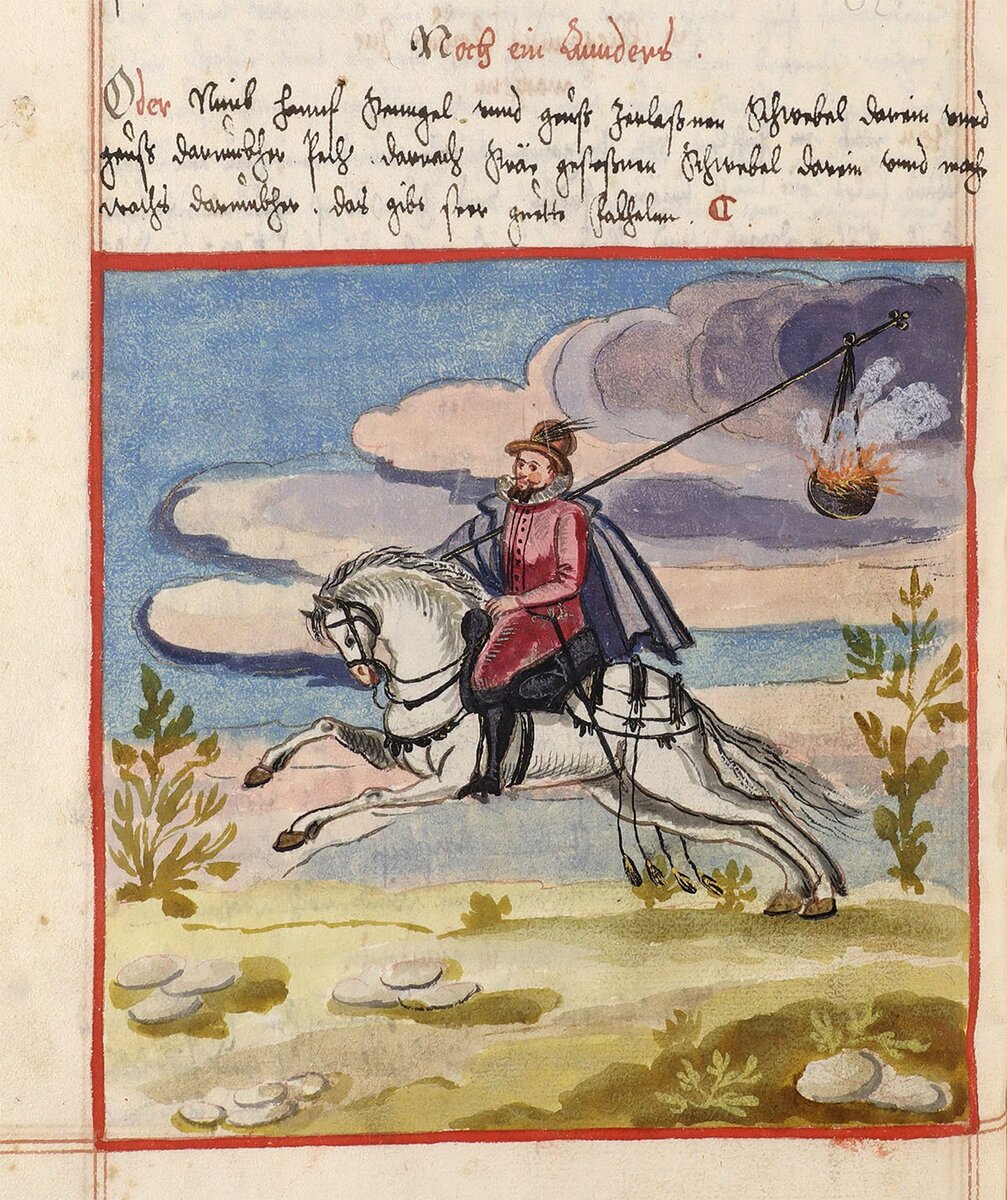 Noch ein annders .
Oder Nimb hannf Stenngel vnnd geuß Zerlaßnen Schwebel darein vnnd
geuß darüber Pech darnach Sträe gestoßnen Schwebel darein vnnd mache
wachs darüber . das gibt seer guette